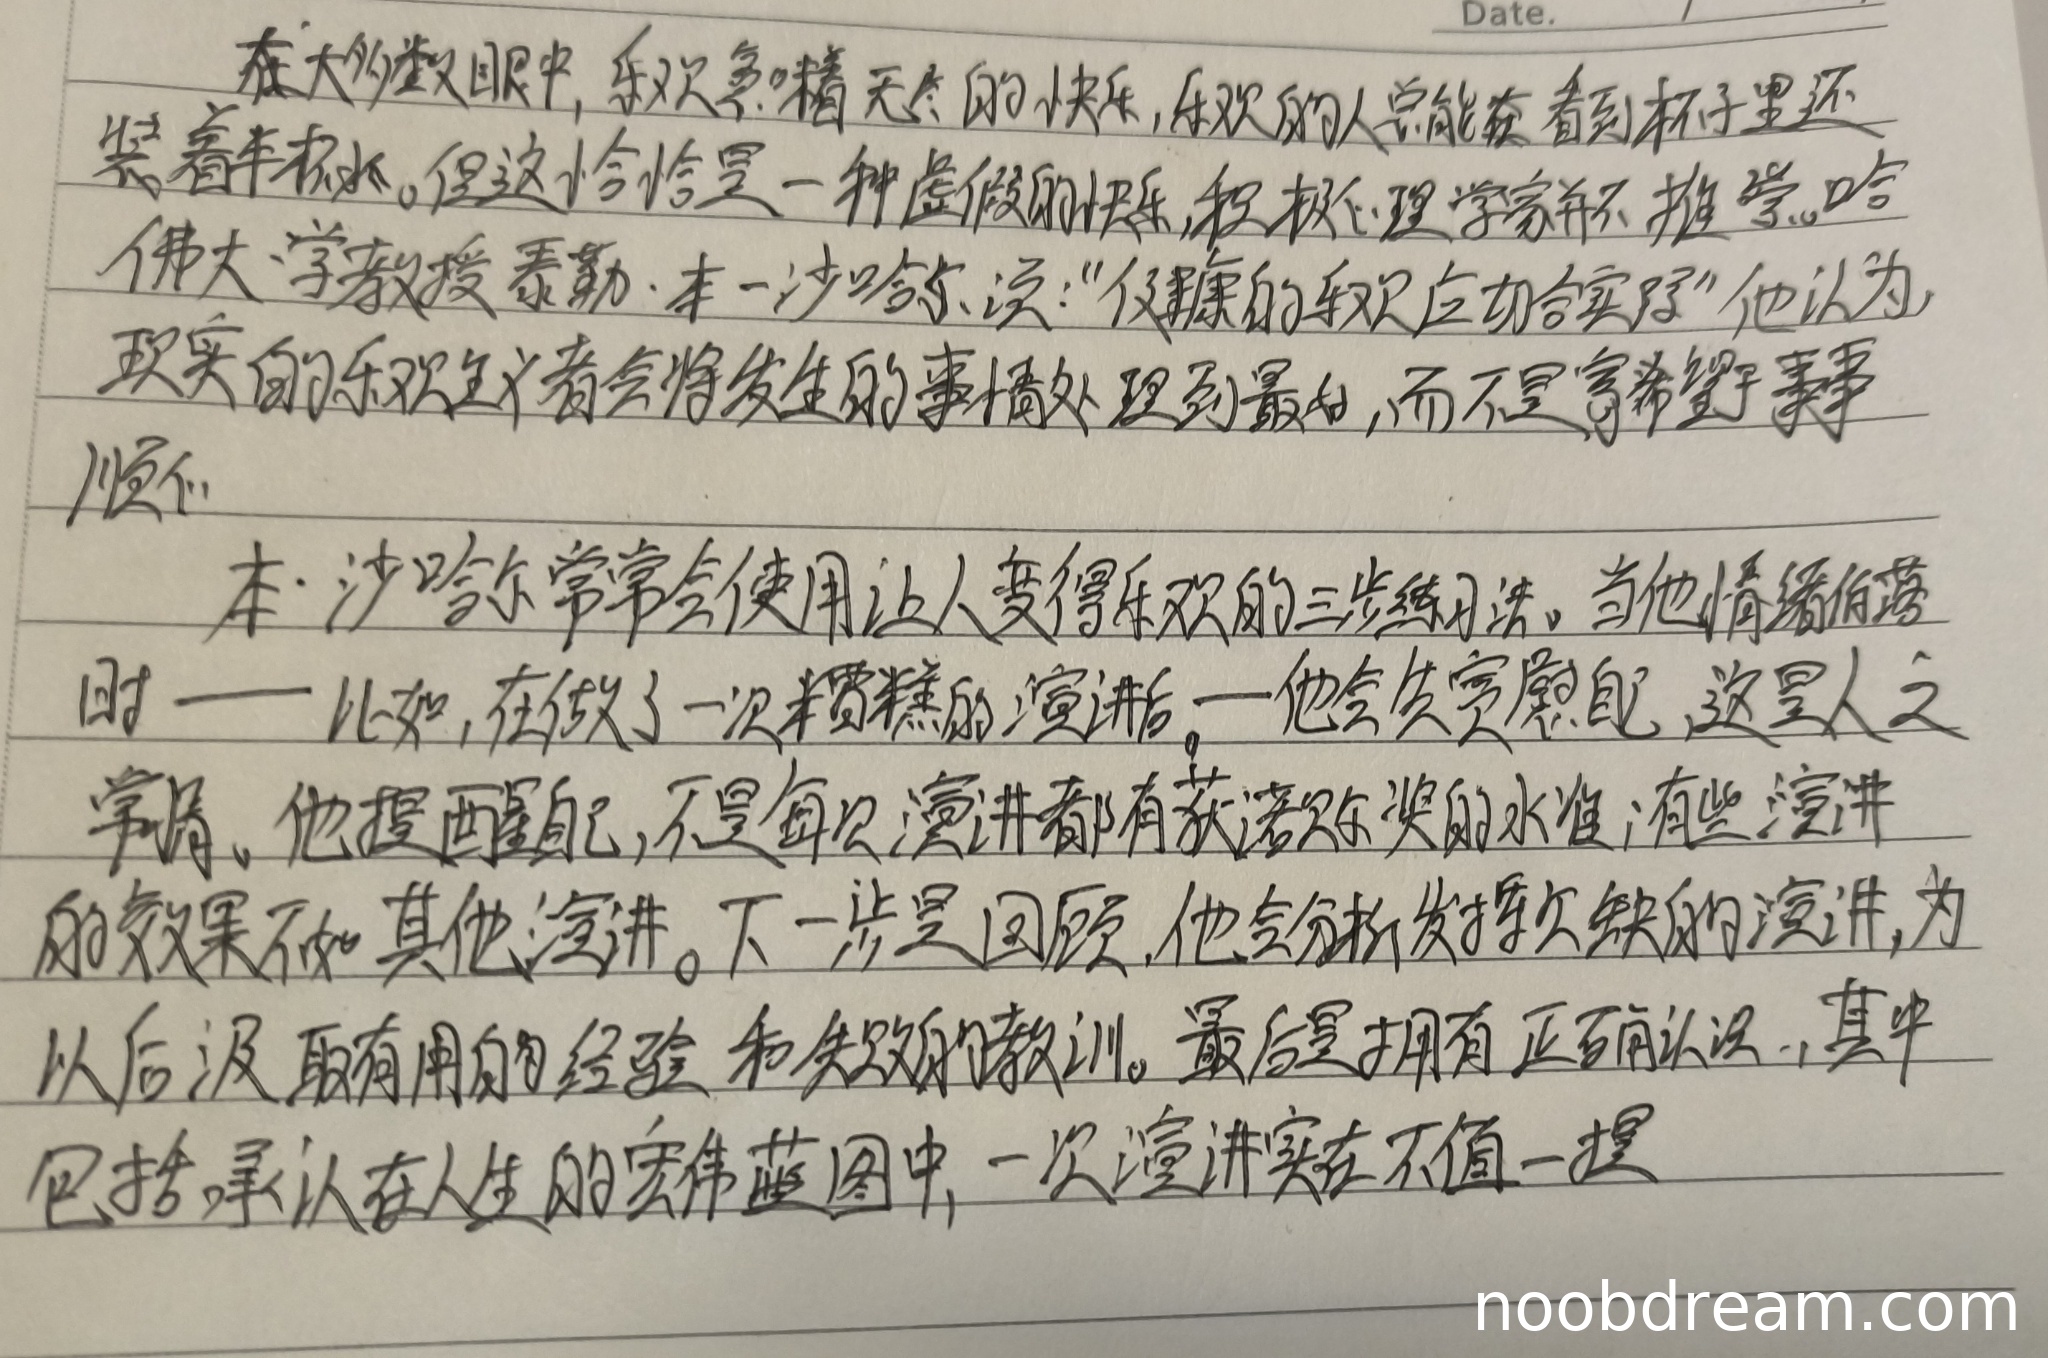 Date. /
在大多数眼中,乐观意味着无尽的快乐,乐观的人总能在看到杯子里还
装着半杯水。但这恰恰是一种虚假的快乐,积极心理学家并不推崇。哈
佛大学教授泰勒·本-沙哈尔说:“健康的乐观应切合实际”他认为,
现实的乐观主义者会将发生的事情处理到最好,而不是寄希望于事事
顺心
本·沙哈尔常常会使用让人变得乐观的三步练习法。当他情绪低落
时——比如,在做了一次糟糕的演讲后。—他会先宽慰自己,这是人之
常情。他提醒自己,不是每次演讲都有获诺贝尔奖的水准;有些演讲
的效果不如其他演讲。下一步是回顾,他会分析发挥欠缺的演讲,为
以后汲取有用的经验和失败的教训。最后是拥有正确认识.,其中
包括承认在人生的宏伟蓝图中,一次演讲实在不值一提
noobdream.com